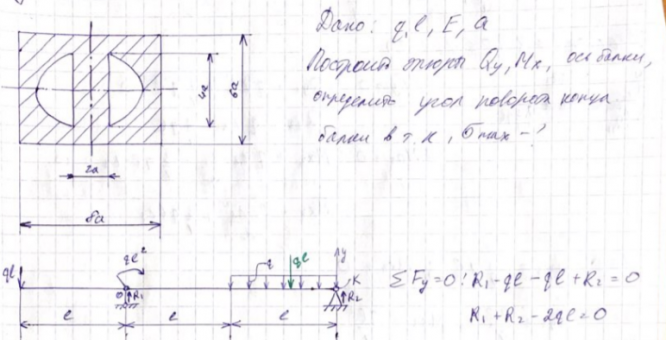 Дано: q, l, E, a
Построить эпюры Qy, Mx, оси балки,
определить угол поворота конца
балки в т. К, σmax - ?
4a
6a
2a
8a
ql
ql²
R₁
q
ql
y
K
R₂
l
l
l
ΣFy=0: R₁-ql-ql+R₂=0
R₁+R₂-2ql=0